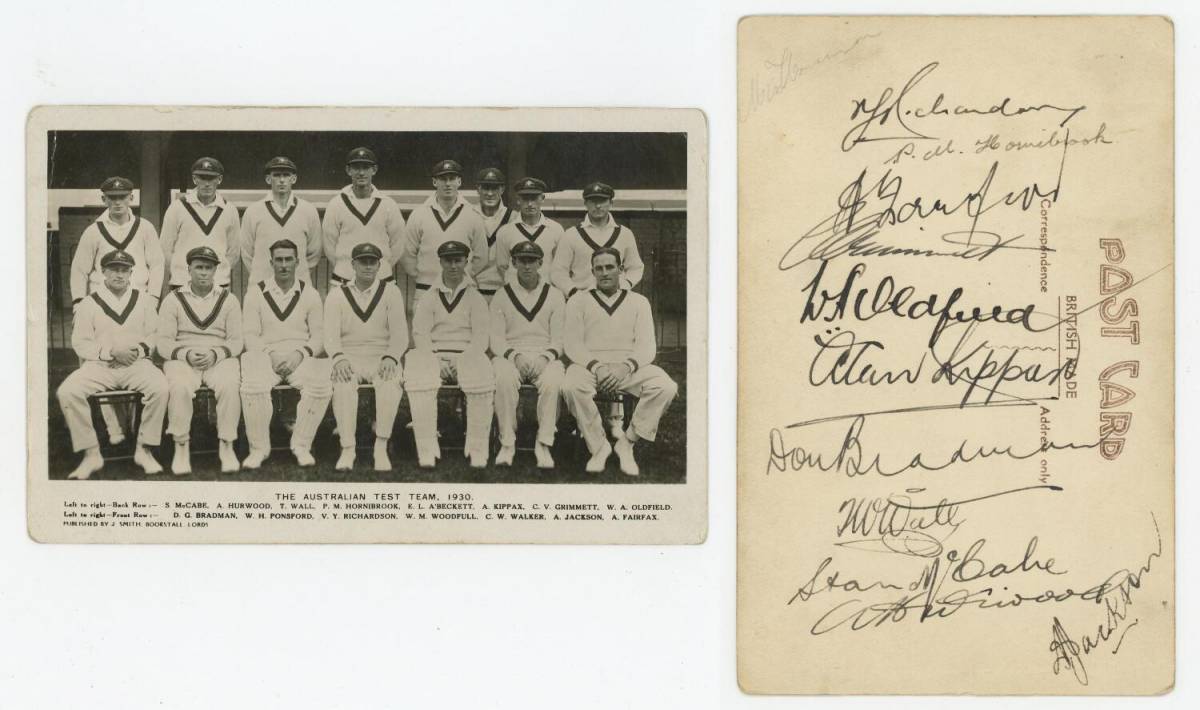 THE AUSTRALIAN TEST TEAM, 1930.
Left to right—Back Row:— S. McCABE, A. HURWOOD, T. WALL, P. M. HORNIBROOK, E. L. A'BECKETT, A. KIPPAX, C. V. GRIMMETT, W. A. OLDFIELD.
Left to right—Front Row:— D. G. BRADMAN, W. H. PONSFORD, V. Y. RICHARDSON, W. M. WOODFULL, C. W. WALKER, A. JACKSON, A. FAIRFAX.
PUBLISHED BY J. SMITH, BOOKSTALL, LORDS
POST CARD
BRITISH MADE
Correspondence
Address only
VY Richardson
P. M. Hornibrook
CV Grimmett
W A Oldfield
Alan Kippax
Don Bradman
TW Wall
Stan McCabe
A Hurwood
A Jackson